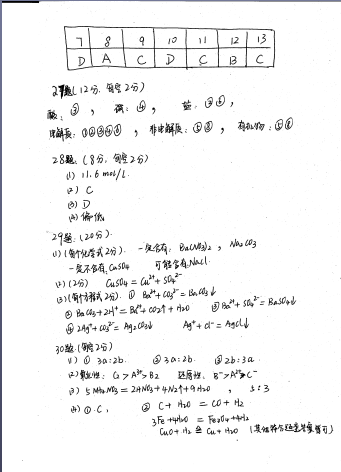 7 8 9 10 11 12 13
D A C D C B C
27题(12分,每空2分)
酸:③, 碱:④, 盐:
电解质: 非电解质: 有机物:⑤⑧
28题.(8分,每空2分)
(1) 11.6 mol/L.
(2) C
(3) D
(4) 偏低
29题.(20分).
(1)(每个化学式2分). 一定含有: Ba(NO3)2, Na2CO3
一定不含有CuSO4 可能含有NaCl.
(2)(2分) CuSO4 = Cu²⁺ + SO4²⁻
(3)(每个方程式2分). ① Ba²⁺+CO3²⁻=BaCO3↓
② BaCO3+2H⁺=Ba²⁺+CO2↑+H2O ③ Ba²⁺+SO4²⁻=BaSO4↓
④ 2Ag⁺+CO3²⁻=Ag2CO3↓ Ag⁺+Cl⁻=AgCl↓
30题.(每空2分)
(1) ① 3a:2b. ② 3a:2b. ③ 2b:3a.
(2) 氧化性: C2>A³⁺>B2 还原性: B⁻>A²⁺>C⁻
(3) 5NH4NO3=2HNO3+4N2↑+9H2O , 5:3
(4) ① C, ② C+H2O=CO+H2
3Fe+4H2O=Fe3O4+4H2
CuO+H2≜Cu+H2O (其他符合题意答案皆可)